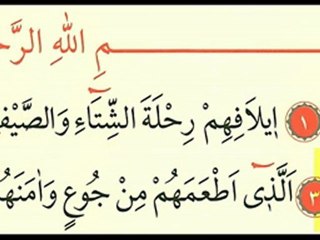 مِ اللهِ الرَّ
١ اٖيلَافِهِمْ رِحْلَةَ الشِّتَٓاءِ وَالصَّيْفِ
٣ اَلَّذٖٓى اَطْعَمَهُمْ مِنْ جُوعٍ وَاٰمَنَهُمْ